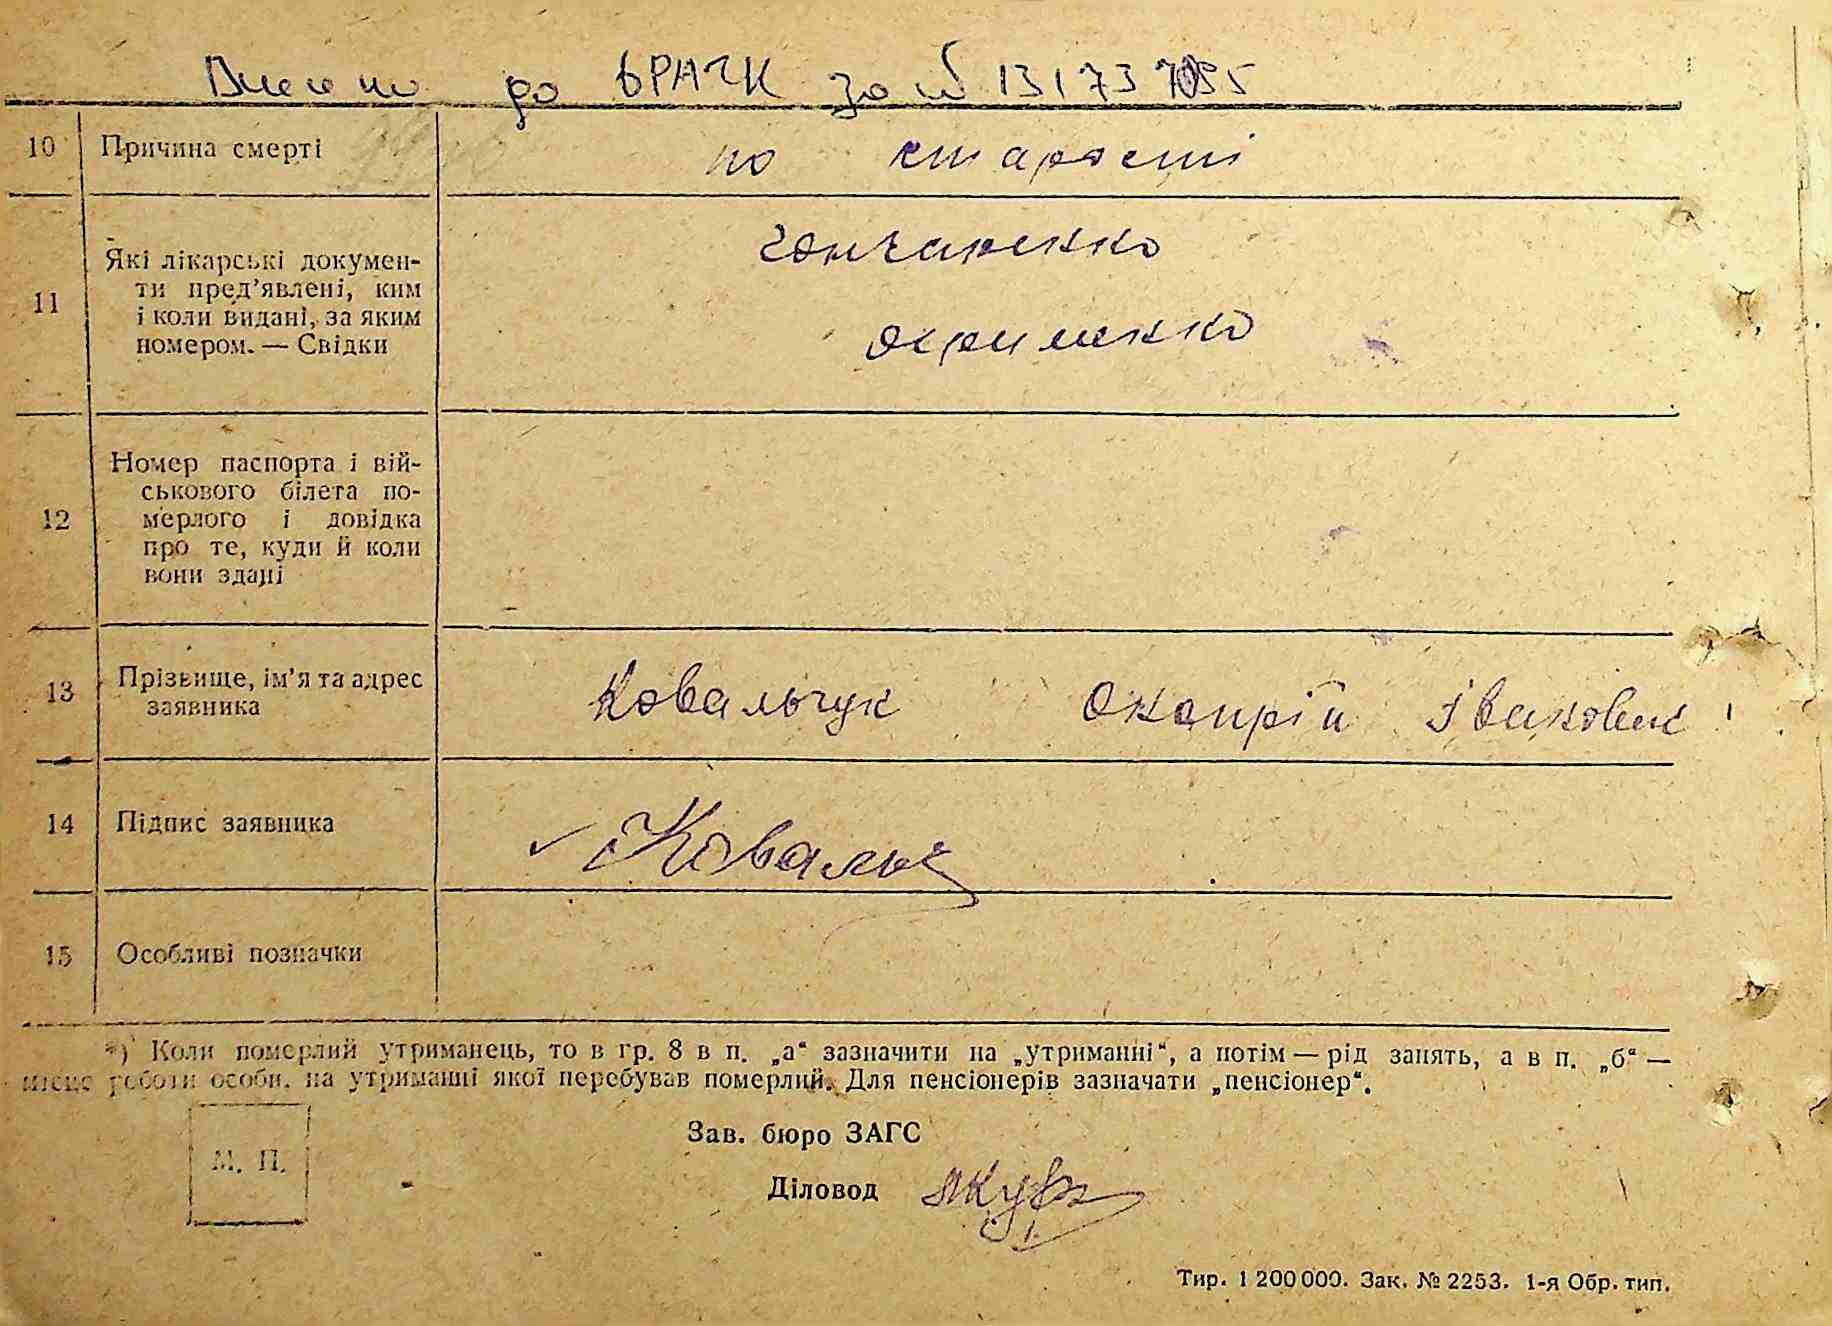 Внесено до ДРАЦГ за № 13173
10 Причина смерті по старості
11 Які лікарські докумен-
ти пред’явлені, ким
і коли видані, за яким
номером. — Свідки
Гончаренко
12 Номер паспорта і вій-
ськового білета по-
мерлого і довідка
про те, куди й коли
вони здані
13 Прізвище, ім’я та адрес
заявника
Ковальчук Іванович
14 Підпис заявника
15 Особливі позначки
*) Коли померлий утриманець, то в гр. 8 в п. „а“ зазначити на „утриманні“, а потім — рід занять, а в п. „б“ —
місце роботи особи, на утриманні якої перебував померлий. Для пенсіонерів зазначати „пенсіонер“.
М. П.
Зав. бюро ЗАГС
Діловод
Тир. 1 200 000. Зак. № 2253. 1-я Обр. тип.